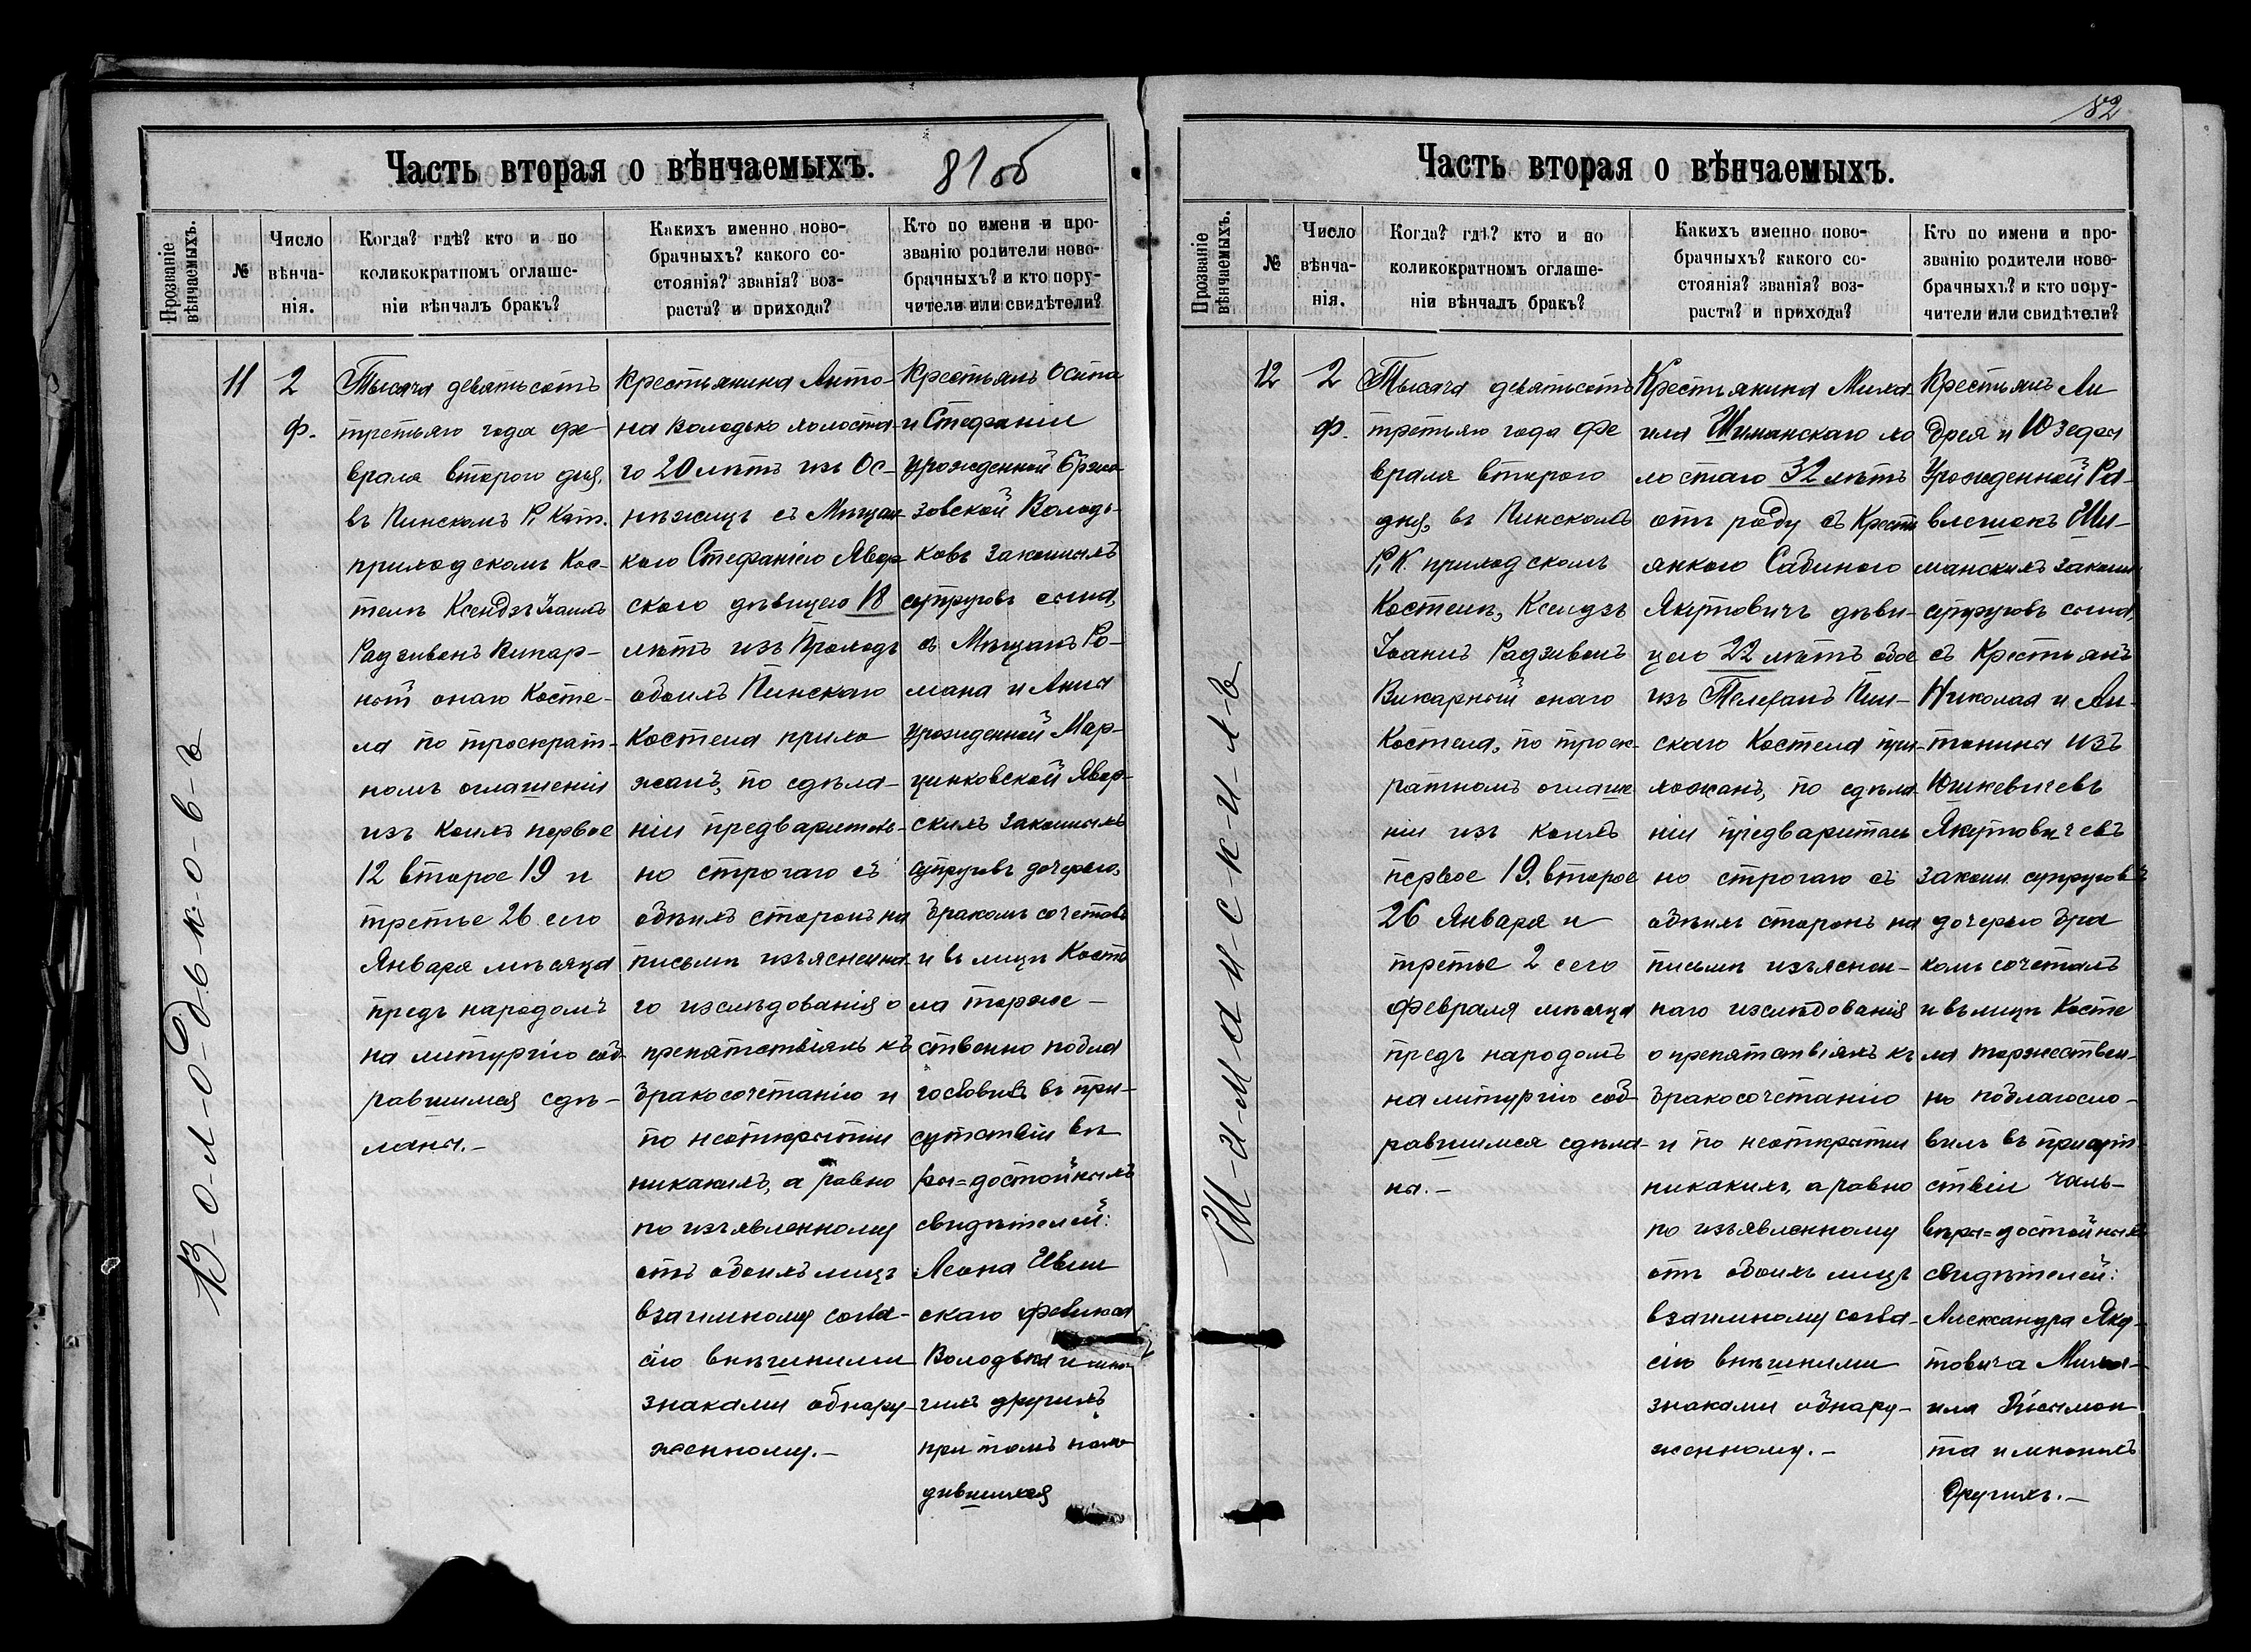 Часть вторая о вѣнчаемыхъ.
81об
Прозваніе
вѣнчаемыхъ.
№
Число
вѣнча-
нія.
Когда? гдѣ? кто и по
коликократномъ оглаше-
ніи вѣнчалъ бракъ?
Каких именно ново-
брачныхъ? какого со-
стоянія? званія? воз-
раста? и прихода?
Кто по имени и про-
званію родители ново-
брачныхъ? и кто пору-
чители или свидѣтели?
В-о-л-о-д-ь-к-о-в-ъ
11
2
ф.
Тысяча девятьсотъ
третьяго года фе-
враля второго дня,
въ Пинскомъ Р, Кат.
приходскомъ Кос-
телѣ Ксендзъ Іоаннъ
Радзивонъ Викар-
ный онаго Косте-
ла по троекрат-
номъ оглашеніи
изъ коихъ первое
12 второе 19 и
третье 26 сего
Января мѣсяца
предъ народомъ
на литургію соб-
равшимся сдѣ-
ланы.-
Крестьянина Анто-
на Володько холоста-
го 20 лѣтъ изъ Ос-
нѣжицъ съ Мѣщан-
кою Стефаніею Явор-
скою дѣвицею 18
лѣтъ изъ Проходъ
обоихъ Пинскаго
Костела прихо
жанъ, по сдѣла-
ніи предваритель-
но строгаго съ
обѣихъ сторонъ на
письмѣ изъясненна-
го изслѣдованія о
препятствіяхъ къ
бракосочетанію и
по неоткрытіи
никакихъ, а равно
по изъявленному
отъ обоихъ лицъ
взаимному согла-
сію внѣшними
знаками обнару-
женному.-
Крестьянъ Осипа
и Стефаніи
урожденной Бржо
зовской Володь-
ковъ законныхъ
супруговъ сына,
съ Мѣщанъ Ро-
мана и Анны
урожденной Мар-
цинковской Явор-
скихъ законныхъ
супруговъ дочерью,
бракомъ сочеталъ
и въ лицѣ Косте
ла торже-
ственно побла
гословилъ въ при-
сутствіи вѣ
ры=достойныхъ
свидѣтелей:
Леона Ивши
скаго
Володька и мно
гихъ другихъ
при томъ нахо
дившихся
82
Часть вторая о вѣнчаемыхъ.
Прозваніе
вѣнчаемыхъ.
№
Число
вѣнча-
нія.
Когда? гдѣ? кто и по
коликократномъ оглаше-
ніи вѣнчалъ бракъ?
Каких именно ново-
брачныхъ? какого со-
стоянія? званія? воз-
раста? и прихода?
Кто по имени и про-
званію родители ново-
брачныхъ? и кто пору-
чители или свидѣтели?
Ш-и-м-а-н-с-к-и-х-ъ
12
2
ф.
Тысяча девятьсотъ
третьяго года Фе
враля второго
дня, въ Пинскомъ
Р, К. приходскомъ
Костелѣ, Ксендзъ
Іоаннъ Радзивонъ
Викарный онаго
Костела, по троек-
ратномъ оглаше
ніи изъ коихъ
первое 19. второе
26 Января и
третье 2 сего
Февраля мѣсяца
предъ народомъ
на литургію соб-
равшимся сдѣла-
ны.-
Крестьянина Миха-
ила Шиманскаго хо
лостаго 32 лѣтъ
отъ роду съ Кресть
янкою Сабиною
Якутовичъ дѣви-
цею 22 лѣтъ обое
изъ Телеханъ Пин-
скаго Костела при-
хожанъ, по сдѣла-
ніи предваритель
но строгаго съ
обѣихъ сторонъ на
письмѣ изъяснен-
наго изслѣдованія
о препятствіяхъ къ
бракосочетанію
и по неоткрытіи
никакихъ, а равно
по изъявленному
отъ обоихъ лицъ
взаимному согла-
сію внѣшними
знаками обнару-
женному.-
Крестьянъ Ан
дрея и Юзефы
Урожденной Ра-
влешокъ Ши-
манскихъ законн
супруговъ сына,
съ Крестьянъ
Николая и Ан-
тонины изъ
Юшкевичевъ
Якутовичевъ
законн. супруговъ
дочерью бра
комъ сочеталъ
и въ лицѣ Косте
ла торжествен-
но поблагосло-
вилъ въ присут-
ствіи
вѣры=достойныхъ
свидѣтелей:
Александра Яку-
товича Миха-
ила
та и многихъ
другихъ.-